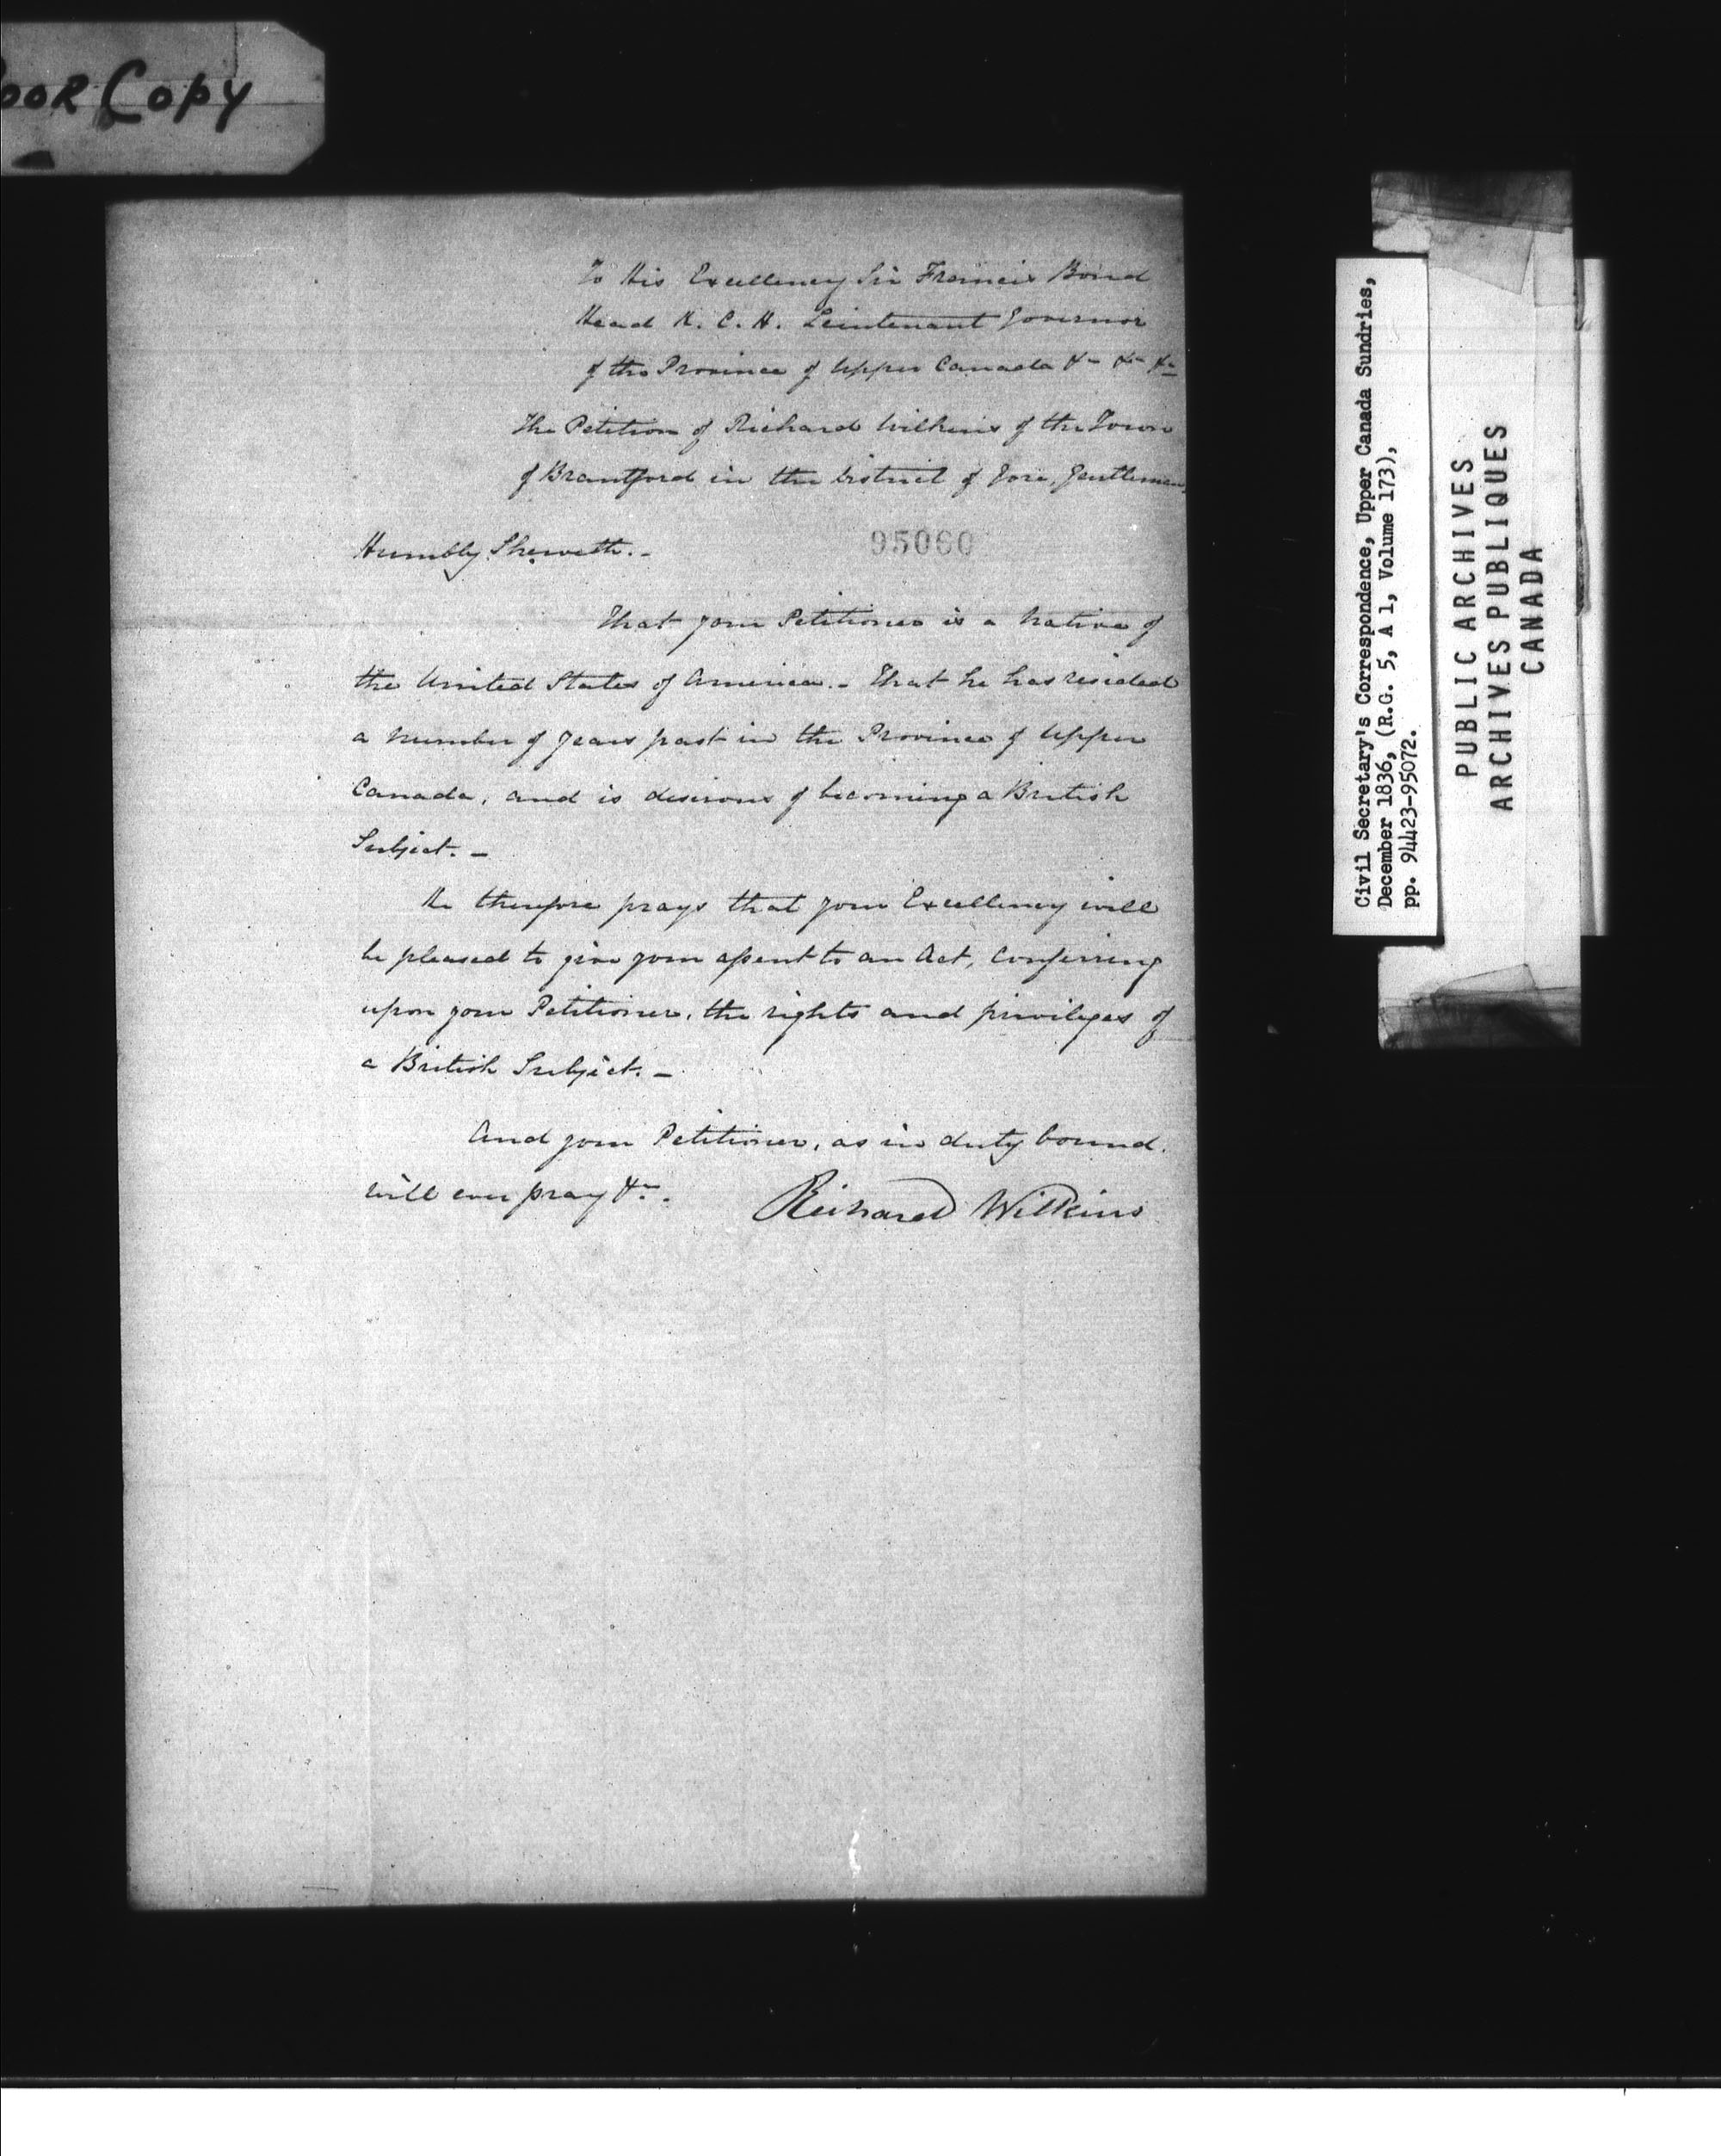 POOR COPY
To His Excellency Sir Francis Bond
Head K. C. H. Lieutenant Governor
of the Province of Upper Canada &c &c &c
The Petition of Richard Wilkins of the Town
of Brantford in the District of Gore, Gentleman,
Humbly Sheweth.-
95060
That your Petitioner is a Native of
the United States of America.- That he has resided
a number of years past in the Province of Upper
Canada, and is desirous of becoming a British
Subject.-
He therefore prays that your Excellency will
be pleased to give your assent to an Act, Conferring
upon your Petitioner, the rights and privileges of
a British Subject.-
And your Petitioner, as in duty bound.
will ever pray &c.
Richard Wilkins
Civil Secretary's Correspondence, Upper Canada Sundries,
December 1836, (R.G. 5, A 1, Volume 173),
pp. 94423-95072.
PUBLIC ARCHIVES
ARCHIVES PUBLIQUES
CANADA